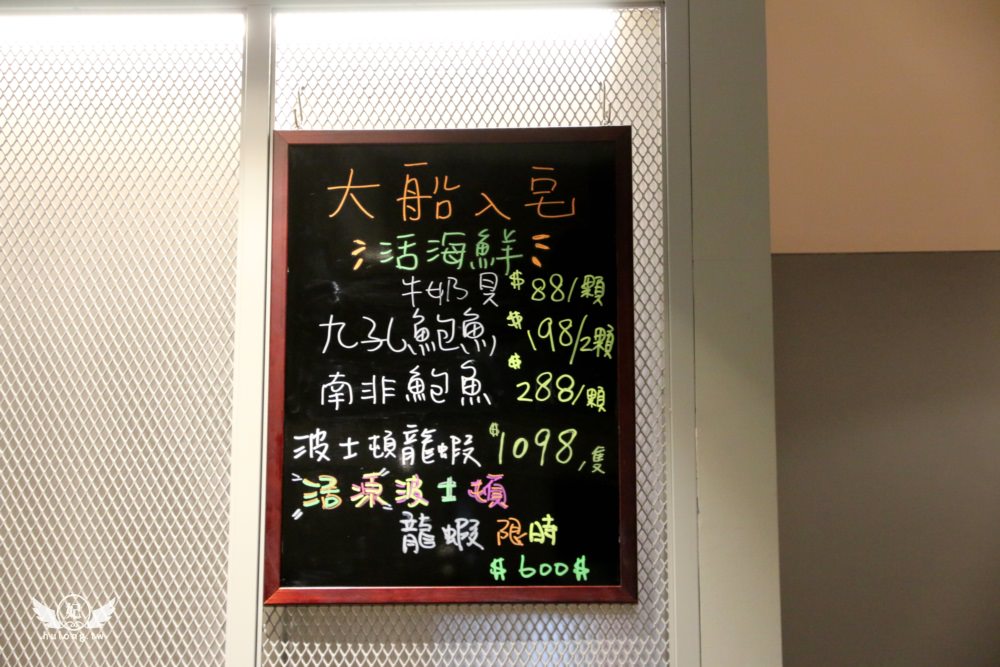 大船入亯
活海鮮
牛奶貝 $88/顆
九孔鮑魚 $198/2顆
南非鮑魚 $288/顆
波士頓龍蝦 $1098/隻
活凍波士頓
龍蝦 限時
$600$
妃
hulong.tw